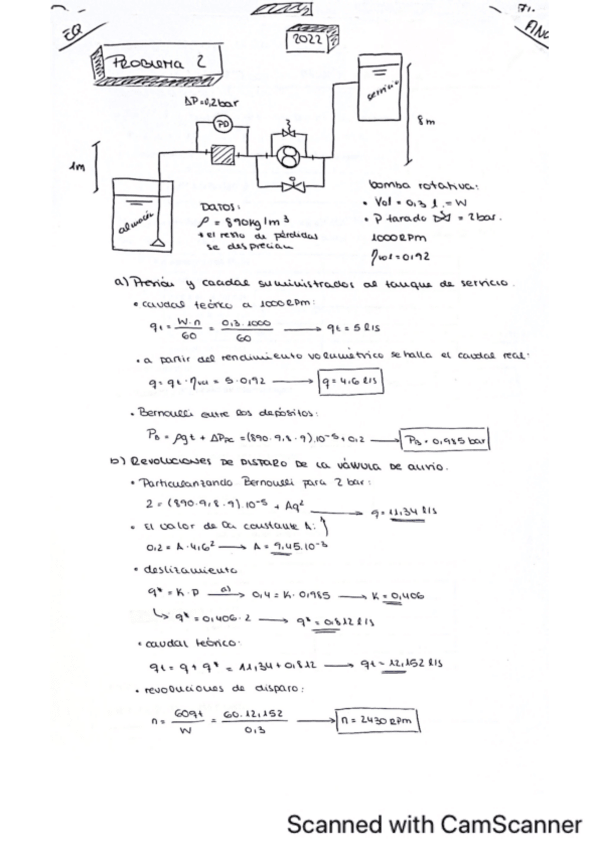 EQ
2022
Problema 2
ΔP=0,2bar
PD
servicio
8m
1m
almacén
DATOS:
ρ = 890kg/m³
* el resto de pérdidas
se desprecian
bomba rotativa:
• Vol = 0,3 l = W
• P tarado = 2bar.
1000RPM
ηvol = 0,92
a) Presión y caudal suministrados al tanque de servicio.
• caudal teórico a 1000RPM:
qt = W·n / 60 = 0,3·1000 / 60 → qt = 5 l/s
• a partir del rendimiento volumétrico se halla el caudal real:
q = qt · ηvol = 5·0,92 → q = 4,6 l/s
• Bernoulli entre los depósitos:
PB = ρgz + ΔPPC = (890·9,8·9)·10⁻⁵ + 0,2 → PB = 0,985 bar
b) REVOLUCIONES DE DISPARO DE LA VÁLVULA DE ALIVIO.
• Particularizando Bernoulli para 2 bar:
2 = (890·9,8·9)·10⁻⁵ + Aq² → q = 11,34 l/s
• El valor de la constante A:
0,2 = A·4,6² → A = 9,45·10⁻³
• deslizamiento
q* = K·P a) → 0,4 = K·0,985 → K = 0,406
↳ q* = 0,406·2 → q* = 0,812 l/s
• caudal teórico:
qt = q + q* = 11,34 + 0,812 → qt = 12,152 l/s
• revoluciones de disparo:
n = 60qt / W = 60·12,152 / 0,3 → n = 2430 RPM
Scanned with CamScanner